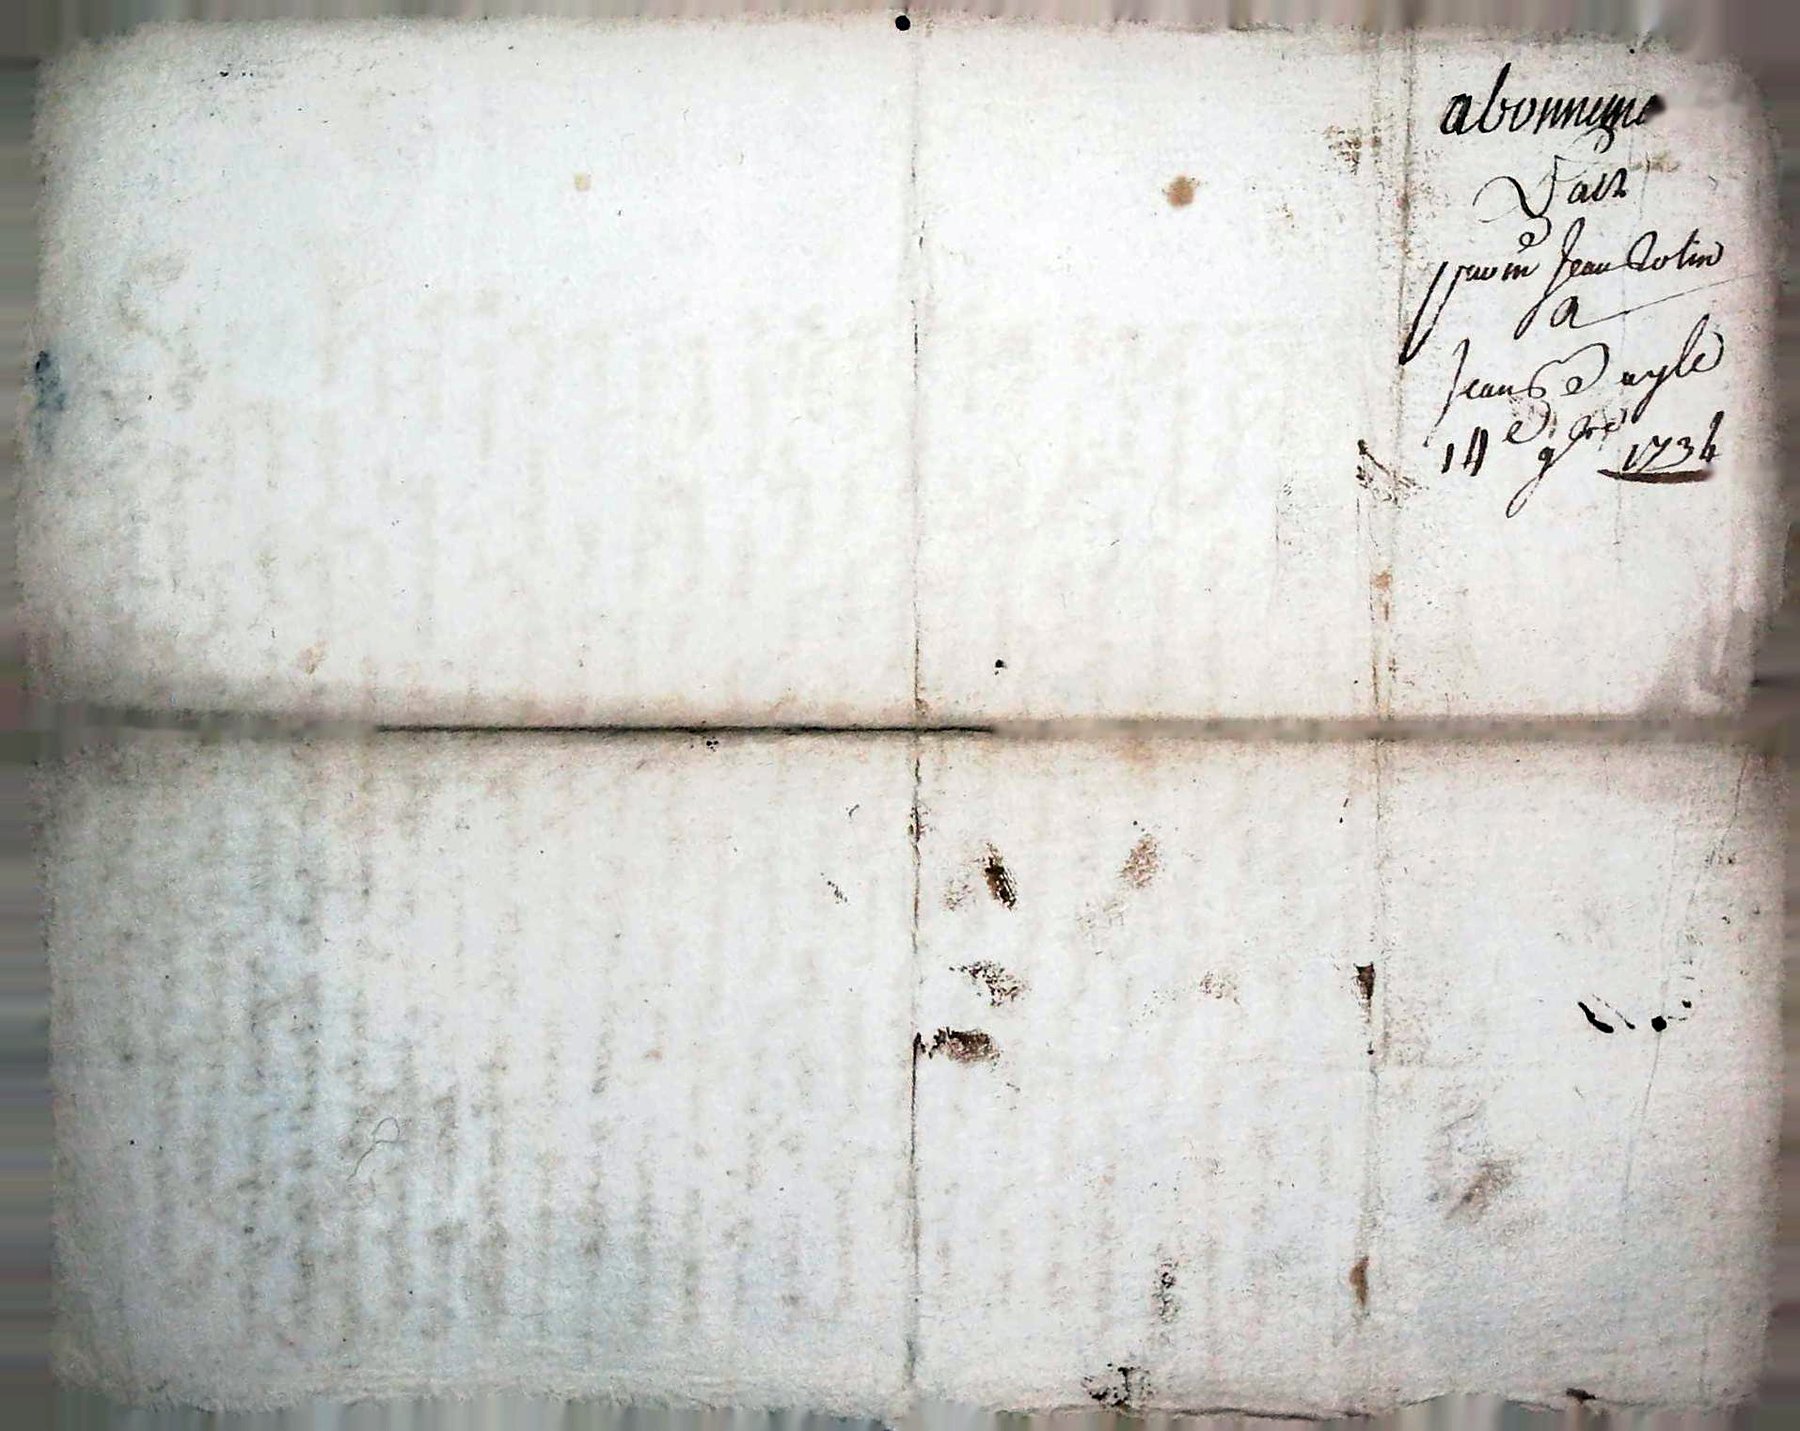 abonneme
fait
par moy Jean Rolin
a
Jean Dayle
14e 9bre 1734